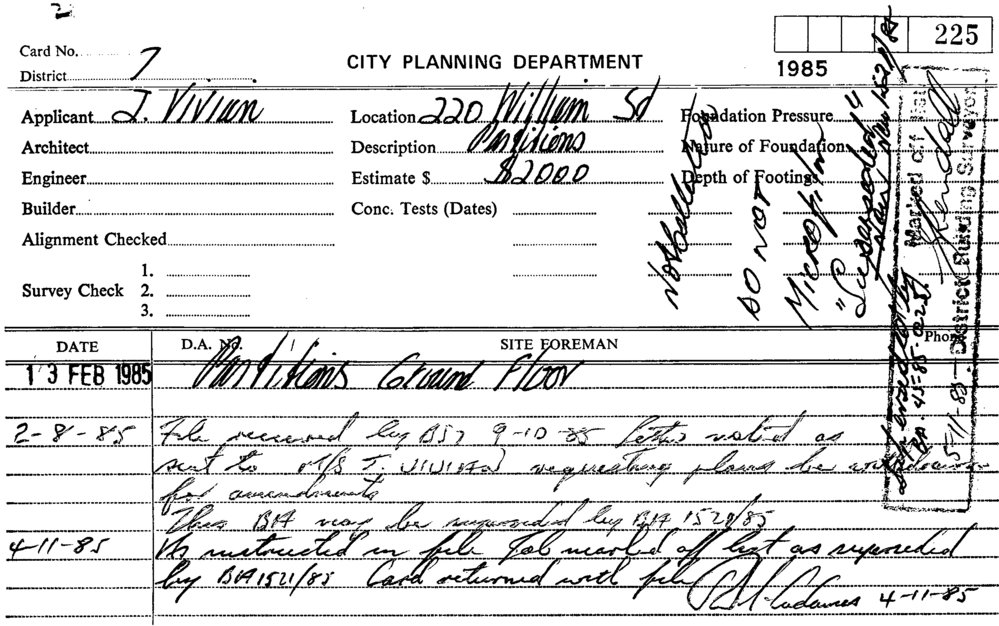 Card No.
District 7
CITY PLANNING DEPARTMENT
225
1985
Applicant J. Vivian
Location 220 William St
Foundation Pressure
Architect
Description Partitions
Nature of Foundation
Engineer
Estimate $ $2000
Depth of Footings
Builder
Conc. Tests (Dates)
Alignment Checked
Survey Check
1.
2.
3.
Not
DO NOT
Microfilm
"Superseded"
Marked off list
District Building Surveyor
5-11-85
Superseded by
BA 45-85-0225
DATE
D.A. No.
SITE FOREMAN
Phone
13 FEB 1985
Partitions Ground Floor
2-8-85 File received by BS7 9-10-85 letter noted as
sent to M/S J. VIVIAN requesting plans be
for amendments
This BA may be superseded by BA 1521/85
4-11-85 As instructed in file Job marked off list as superseded
by BA 1521/85 Card returned with file
4-11-85